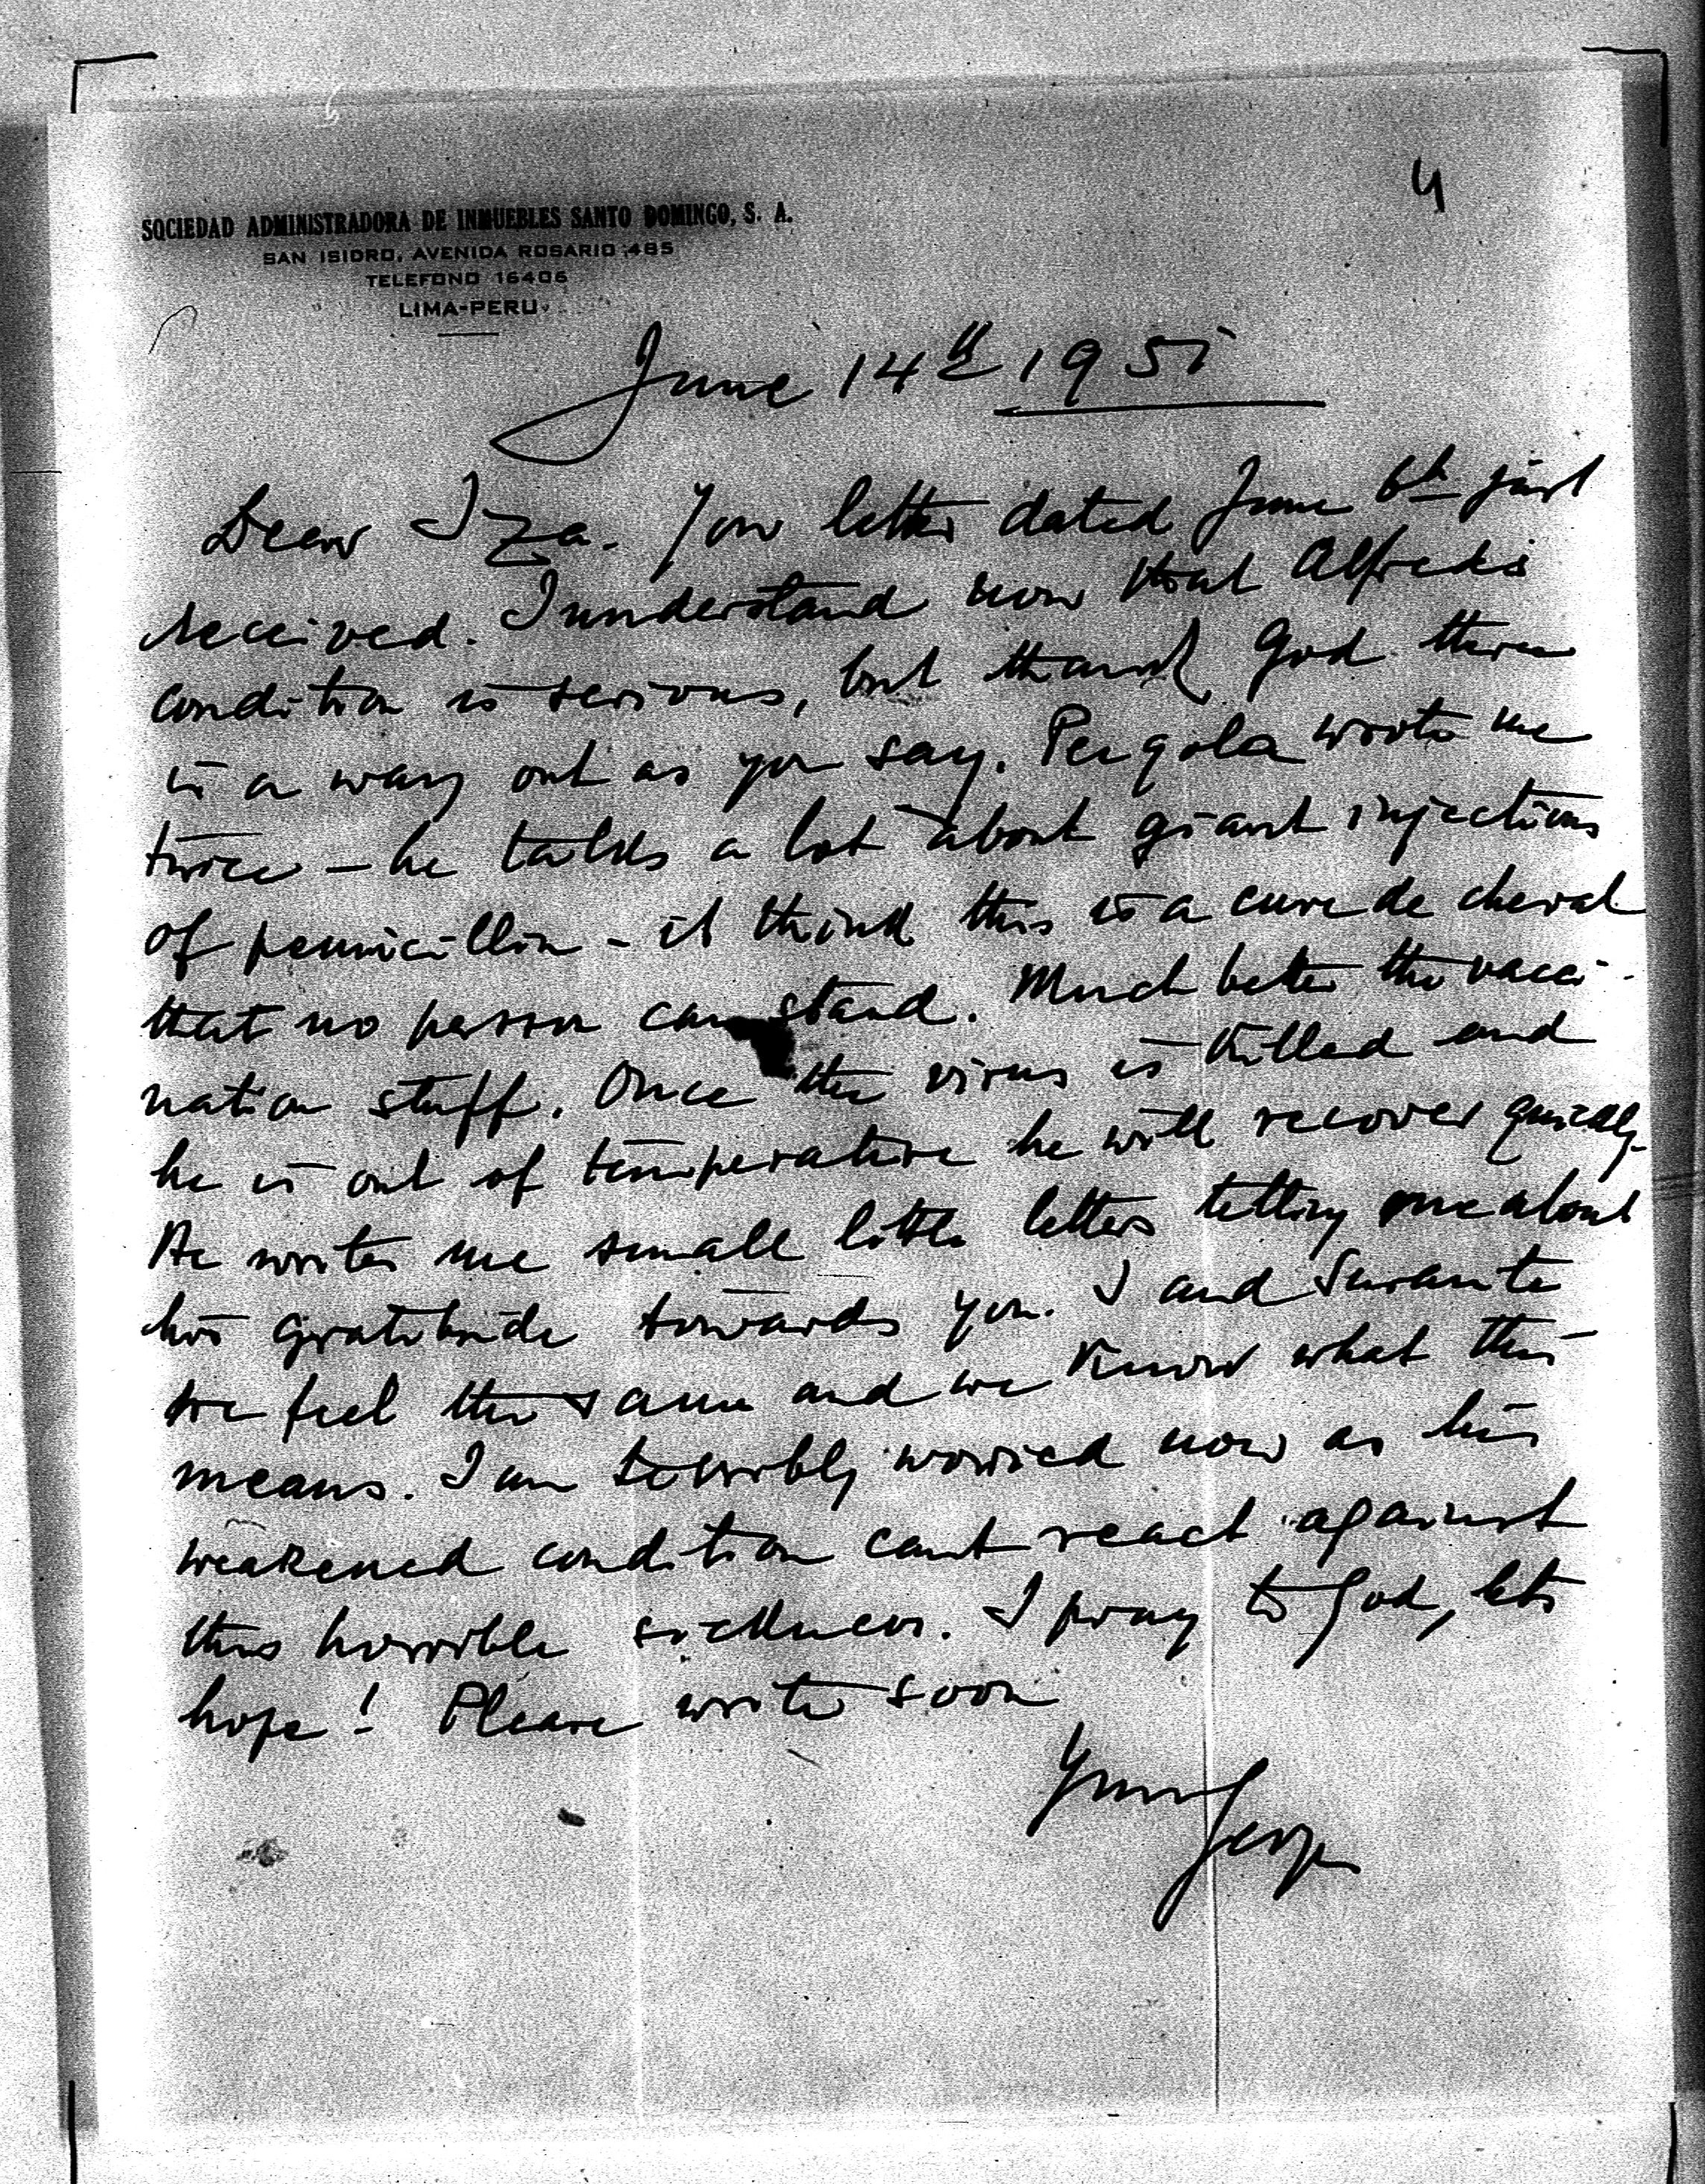 4
SOCIEDAD ADMINISTRADORA DE INMUEBLES SANTO DOMINGO, S. A.
SAN ISIDRO, AVENIDA ROSARIO 485
TELEFONO 16406
LIMA-PERU
June 14th 1951
Dear Iza. Your letter dated June 6th just
received. I understand now that Alfredo's
condition is serious, but thank God there
is a way out as you say. Pergola wrote me
twice - he talks a lot about giant injections
of pennicillin - I think this is a cure de cheval
that no person can stand. Much better the vacci-
nation stuff. Once the virus is killed and
he is out of temperature he will recover quickly.
He writes me small little letters telling me about
his gratitude towards you. I and
we feel the same and we know what this
means. I am terribly worried now as his
weakened condition cant react against
this horrible sickness. I pray to God, lets
hope! Please write soon
Your